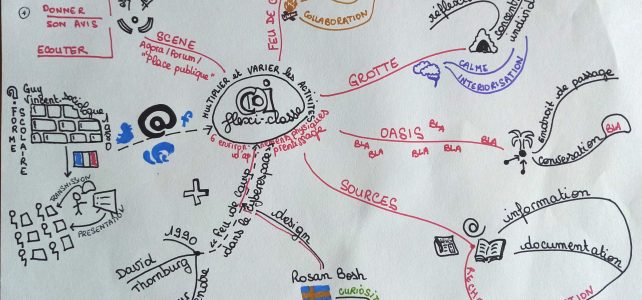 DONNER
SON AVIS
ECOUTER
SCENE
Agora/Forum/
"Place publique"
FEU DE
COLLABORATION
MULTIPLIER et VARIER les ACTIVITÉS
flexi-classe
GROTTE
CALME
INTERIORISATION
OASIS
BLA
BLA
BLA
BLA
BLA
BLA
BLA
endroit de passage
conversation
BLA
SOURCES
information
documentation
Guy
Vincent sociologue
1980
FORME
SCOLAIRE
TRANSMISSION
PRESENTATION
@
@
feu de camp
dans le cyberespace
design
1990
David
Thornburg
Rosan Bosh